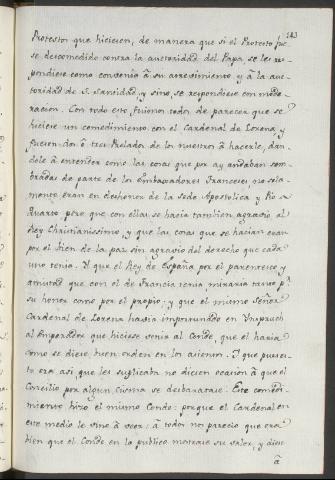 143
Protestos que hiciesen, de manera que si el Protesto fue-
se descomedido contra la auctoridad del Papa, se les res-
pondiese como convenia á su atrevimiento y á la auc-
toridad de S. Santidad, y sino se respondiese con mode-
racion. Con todo esto fuimos todos de parecer que se
hiciese un comedimiento con el Cardenal de Lorena, y
fuesen dos ó tres Prelados de los nuestros á hacerle, dan-
dole á entender como las cosas que por ay andaban sem-
bradas de parte de los Embaxadores Franceses, no sola-
mente eran en deshonor de la Sede Apostolica y Pio
Quarto pero que con ellas se hacia tambien agravio al
Rey Christianissimo, y que las cosas que se hacian eran
por el bien de la paz sin agravio del derecho que cada
uno tenia. Y que el Rey de España por el parentesco y
amistad que con el de Francia tenia, miraria tanto pr.
su honor como por el propio: y que el mismo Señor
Cardenal de Lorena havia imprimido en Ynspruch
al Emperador que hiciese venir al Conde, que el haria
como se diese buen orden en los asientos. Y que pues es-
to era asi que les suplicaba no diesen ocasion á que el
Concilio por algun Cisma se desbaratase. Este comedi-
miento hizo el mismo Conde: porque el Cardenal en
este medio le vino á veer: á todos nos parecio que era
bien que el Conde en lo publico mostrase su valor, y diese
á